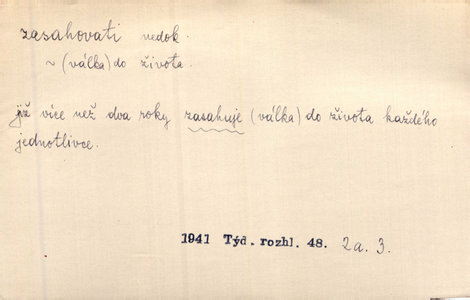 zasahovati nedok.
~ (válka) do života.
již více než dva roky zasahuje (válka) do života každého
jednotlivce.
1941 Týd. rozhl. 48. 2a. 3.